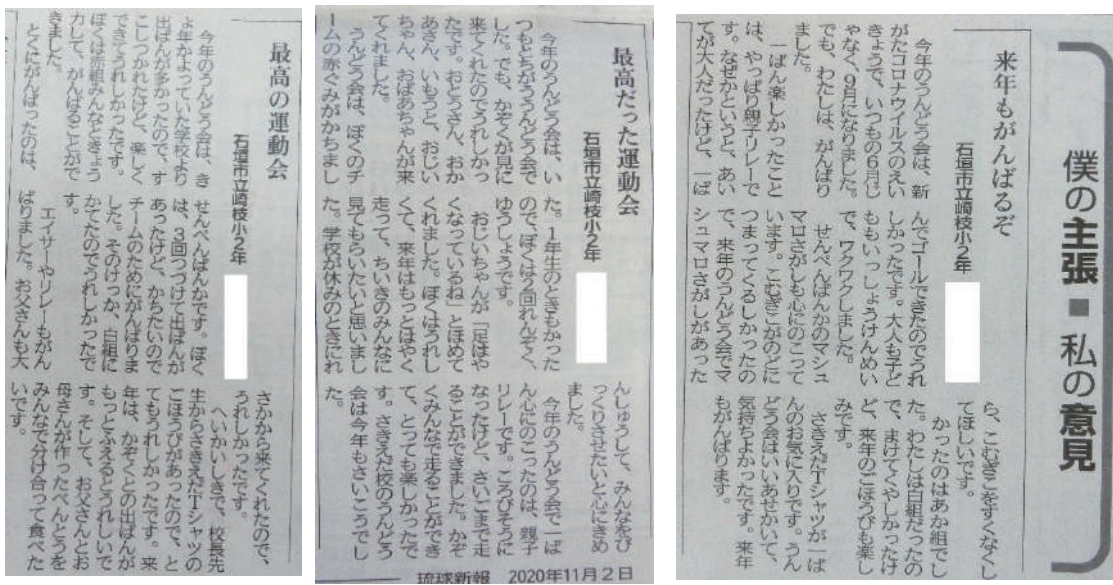 僕の主張■私の意見
来年もがんばるぞ
石垣市立崎枝小2年
今年のうんどう会は、新
がたコロナウイルスのえい
きょうで、いつもの6月じ
ゃなく、9月になりました。
でも、わたしは、がんばり
ました。
一ばん楽しかったこと
は、やっぱり親子リレーで
す。なぜかというと、あい
てが大人だったけど、一ば
んでゴールできたのでうれ
しかったです。大人も子ど
ももいっしょうけんめい
で、ワクワクしました。
せんぺんばんかのマシュ
マロさがしも心にのこって
います。こむぎこがのどに
つまってくるしかったの
で、来年のうんどう会でマ
シュマロさがしがあった
ら、こむぎこをすくなくし
てほしいです。
かったのはあか組でし
た。わたしは白組だったの
で、まけてくやしかったけ
ど、来年のごほうびも楽し
みです。
さきえだTシャツが一ば
んのお気に入りです。うん
どう会はいいあせかいて、
気持ちよかったです。来年
もがんばります。
最高だった運動会
石垣市立崎枝小2年
今年のうんどう会は、い
つもとちがううんどう会で
した。でも、かぞくが見に
来てくれたのでうれしかっ
たです。おとうさん、おか
あさん、いもうと、おじい
ちゃん、おばあちゃんが来
てくれました。
うんどう会は、ぼくのチ
ームの赤ぐみがかちまし
た。1年生のときもかった
ので、ぼくは2回れんぞく、
ゆうしょうです。
おじいちゃんが「足はや
くなっているね」とほめて
くれました。ぼくはうれし
くて、来年はもっとはやく
走って、ちいきのみんなに
見てもらいたいと思いまし
た。学校が休みのときにれ
んしゅうして、みんなをび
っくりさせたいと心にきめ
ました。
今年のうんどう会で一ば
ん心にのこったのは、親子
リレーです。ころびそうに
なったけど、さいごまで走
ることができました。かぞ
くみんなで走ることができ
て、とっても楽しかったで
す。さきえだ校のうんどう
会は今年もさいこうでし
た。
琉球新報 2020年11月2日
最高の運動会
石垣市立崎枝小2年
今年のうんどう会は、き
ょ年かよっていた学校より
出ばんが多かったので、す
こしつかれたけど、楽しく
できてうれしかったです。
ぼくは赤組みんなときょう
力して、がんばることがで
きました。
とくにがんばったのは、
せんぺんばんかです。ぼく
は、3回つづけて出ばんが
あったけど、かちたいので
チームのためにがんばりま
した。そのけっか、白組に
かてたのでうれしかったで
す。
エイサーやリレーもがん
ばりました。お父さんも大
さかから来てくれたので、
うれしかったです。
へいかいしきで、校長先
生からさきえだTシャツの
ごほうびがあったので、と
てもうれしかったです。来
年は、かぞくとの出ばんが
もっとふえるとうれしいで
す。そして、お父さんとお
母さんが作ったべんとうを
みんなで分け合って食べた
いです。